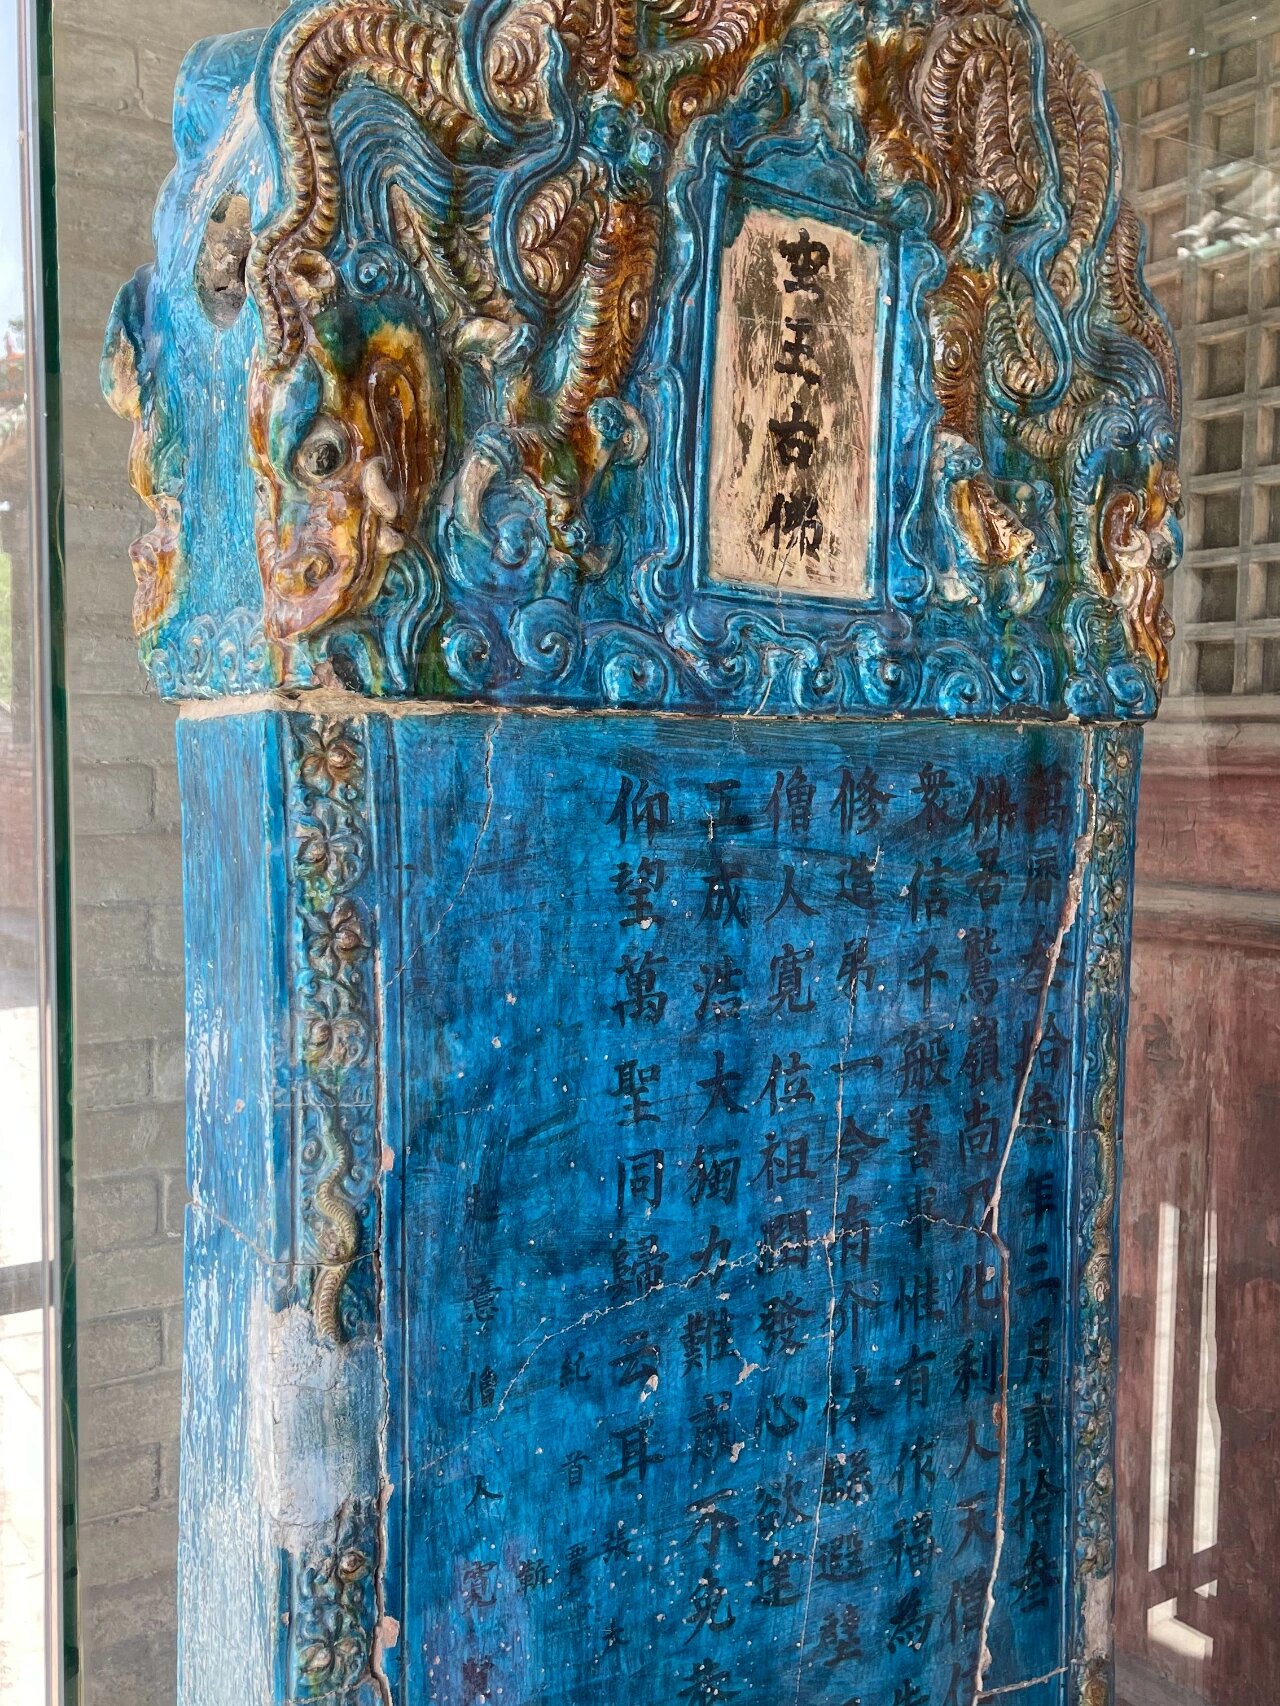 虫王古佛
萬曆叁拾叁年三月貳拾叁
佛居鷲嶺尚乃化利人天僧
衆信千般善事惟有作福為先
修造弟一今有介休縣遐壁
僧人寛位祖闊發心欲造
工成浩大獨力難成不免
仰望萬聖同歸云耳
糺首
僧人寛